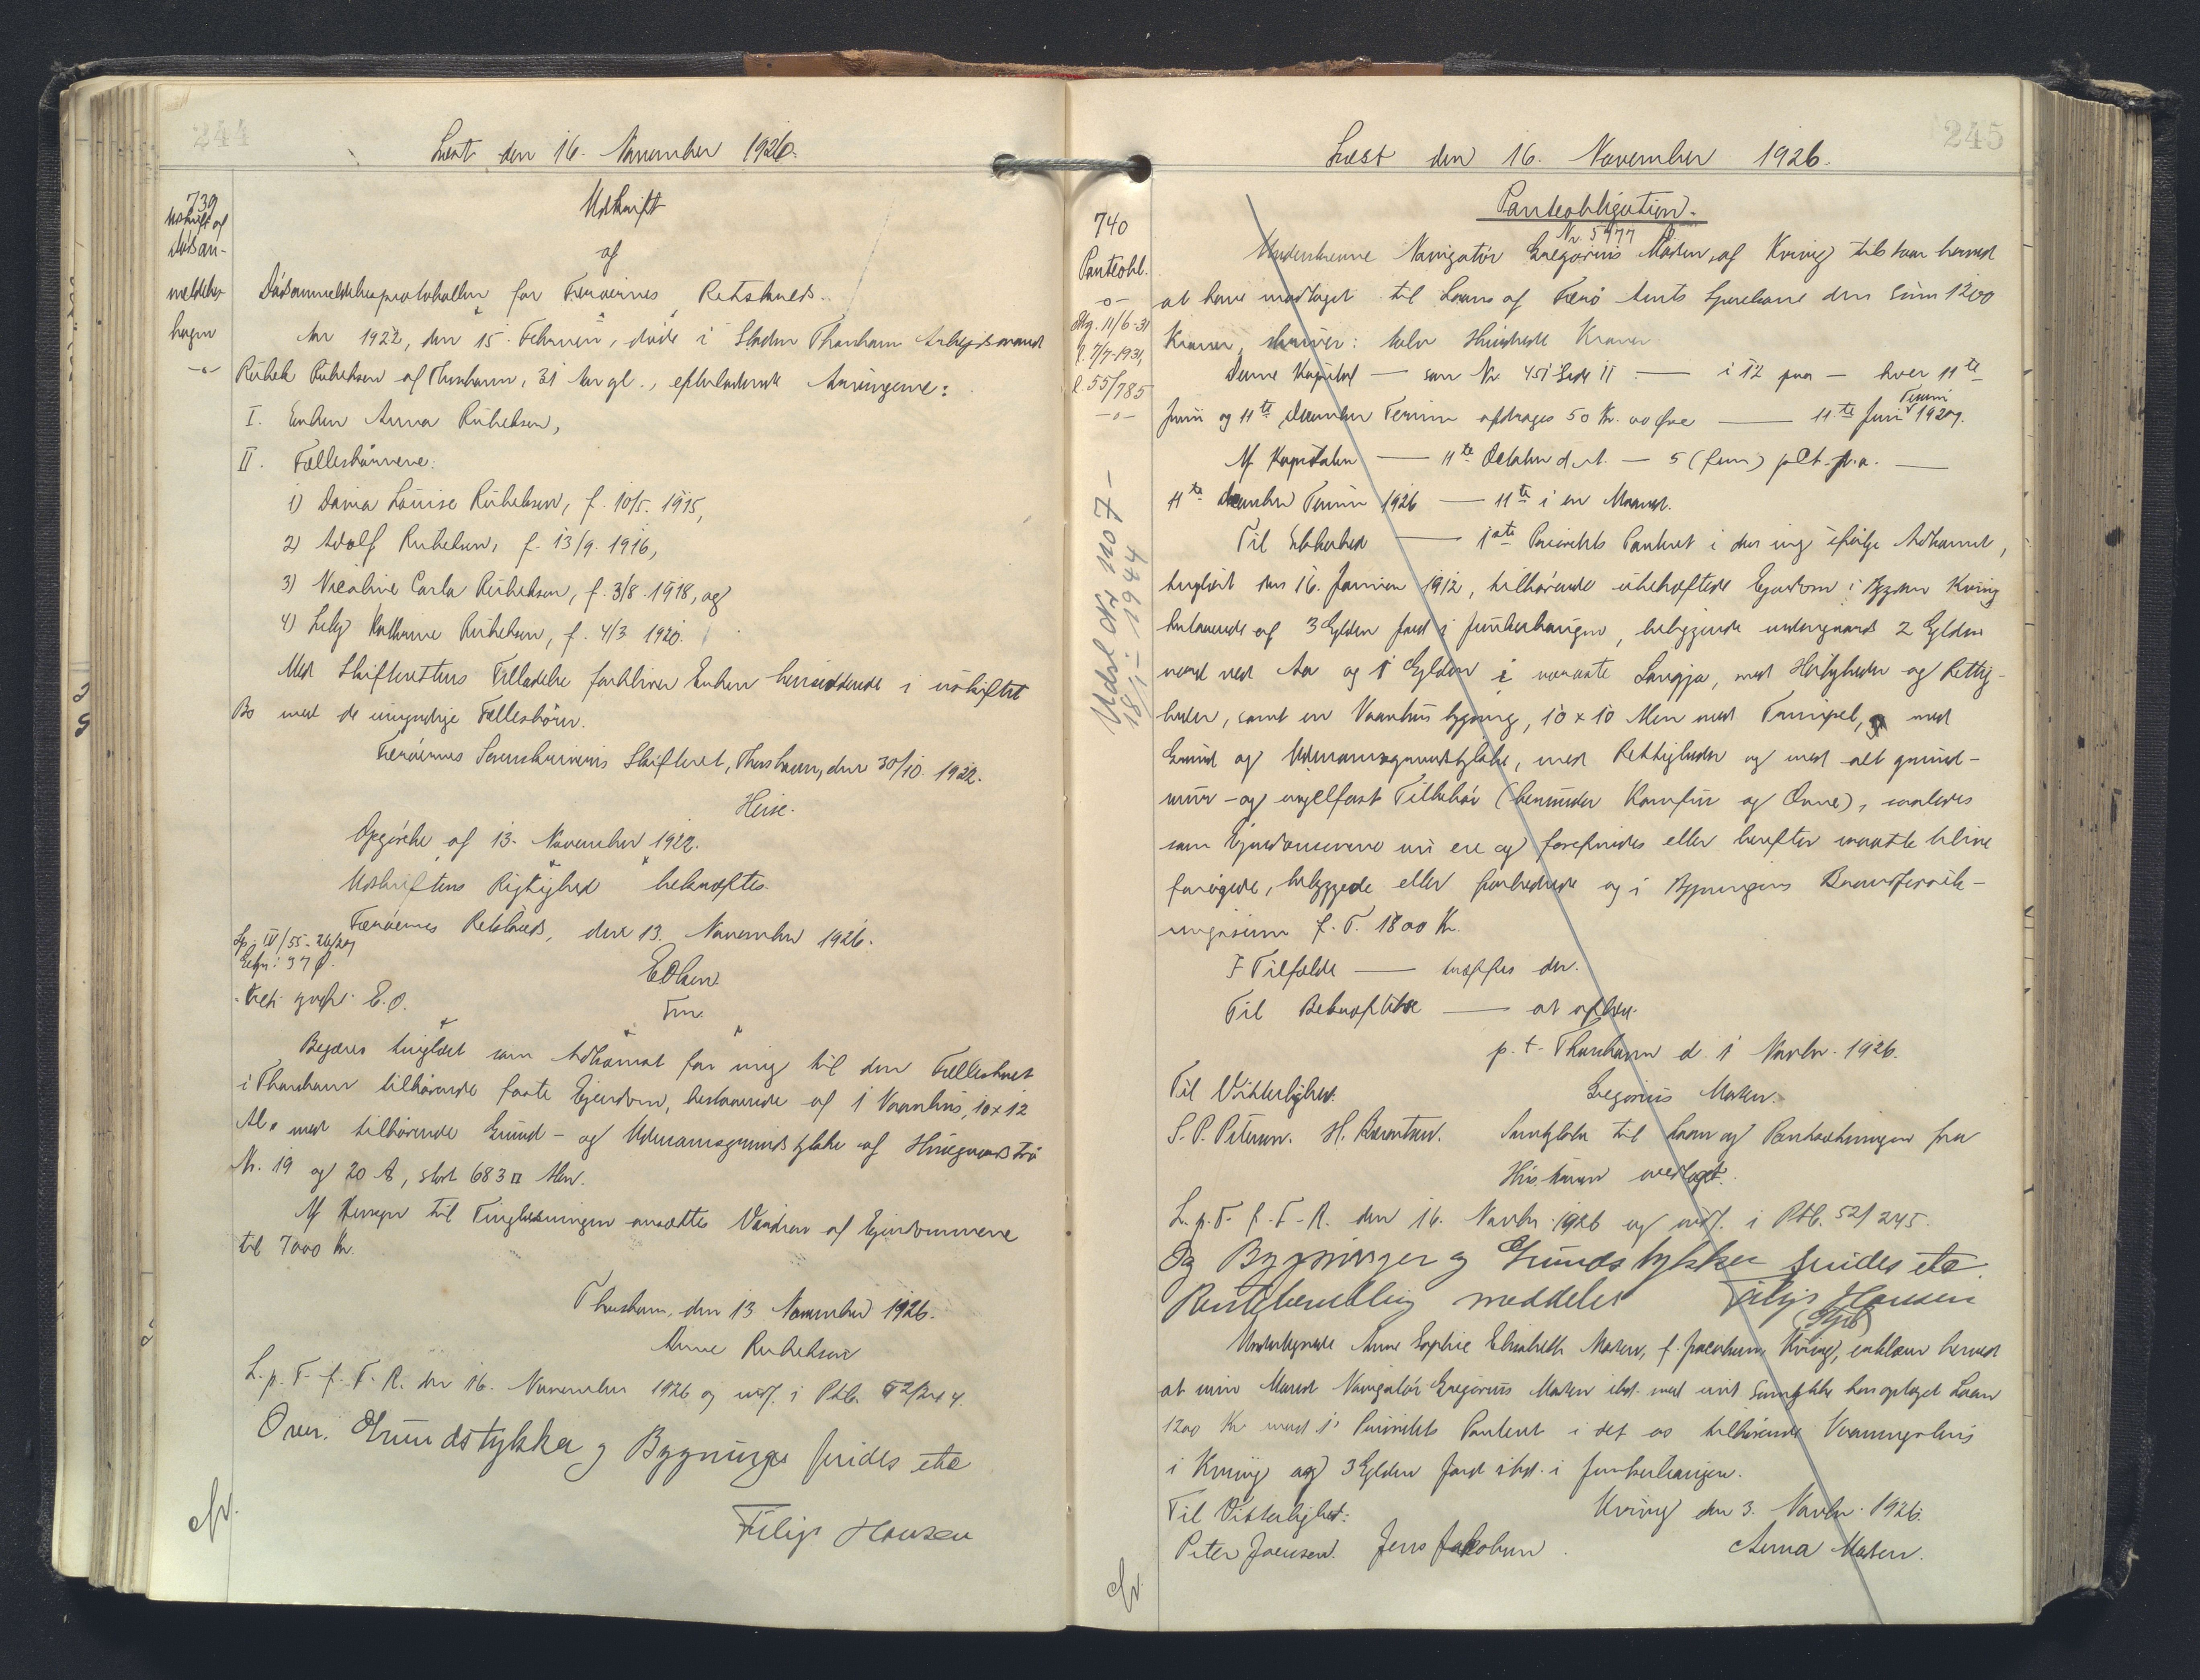 244
Læst den 16. November 1926.
739
Udskrift af
dødsan-
meldelses-
bogen
-o-
Udskrift
af
Dødsanmeldelsesprotokollen for Færøernes Retskreds.
Aar 1922, den 15. Februar, døde i Staden Thorshavn Arbejdsmand
Rubek Rubeksen af Thorshavn, 31 Aar gl., efterladende Arvingerne:
I. Enken Anna Rubeksen,
II. Fællesbørnene:
1) Dania Louise Rubeksen, f. 10/5. 1915,
2) Adolf Rubeksen, f. 13/9. 1916,
3) Nicoline Carla Rubeksen, f. 3/8. 1918, og
4) Lilly Kathrine Rubeksen, f. 4/3 1920.
Med Skifterettens Tilladelse forbliver Enken hensiddende i uskiftet
Bo med de umyndige Fællesbørn.
Færøernes Sorenskriveris Skifteret, Thorshavn, den 30/10. 1922.
Heise.
Opgørelse af 13. November 1922.
Udskriftens Rigtighed bekræftes.
Færøernes Retskreds, den 13. November 1926.
Gebyr: 37 Ø.
EOlsen
Fm.
Begæres tinglæst som Adkomst for mig til den Fællesboet
i Thorshavn tilhørende faste Ejendom, bestaaende af 1 Vaanhus, 10 x 12
Al. med tilhørende Grund- og Udmarksgrundstykke af Husegaards Trø
Nr. 19 og 20 A, stort 683 □ Alen.
Af Hensyn til Tinglæsningen ansættes Værdien af Ejendommene
til 7000 Kr.
Thorshavn, den 13 November 1926.
Anna Rubeksen
L. p. T. f. F. R. den 16. November 1926 og indf. i Ptb. 52/244.
Over. Grundstykke og Bygninger findes etc
Filip Hansen
cfr.
245
Læst den 16. November 1926.
740
Panteobl.
-o-
Beg. 11/6-31
l. 7/7-1931,
l. 55/785
-o-
Udsl Nr 1107-
18/1-1944
Panteobligation.
Nr. 5477
Underskrevne Navigatør Gregorius Madsen, af Kvivig tilstaar herved
at have modtaget til Laans af Færø Amts Sparekasse den Sum 1200
Kroner, skriver: tolv Hundrede Kroner
Denne Kapital — som Nr. 451 Side II — i 12 paa — hver 11te
Juni og 11te December Termin afdrages 50 Kr. 00 Øre — 11te Juni Termin 1929.
Af Kapitalen — 11te Oktober d. A. — 5 (fem) pCt. p. a. —
11te December Termin 1926 — 11te i en Maaned.
Til Sikkerhed — 1ste Prioritets Panteret i den mig ifølge Adkomst,
tinglæst den 16. Januar 1912, tilhørende ubehæftede Ejendom i Bygden Kvivig
bestaaende af 3 Gylden Jord i Junkerhaugen, beliggende indengaards 2 Gylden
nord ved Aa og 1 Gylden i nørdste Langja, med Herligheder og Rettig-
heder, samt en Vaanhus bygning, 10 x 10 Alen med Tømpel, og med
Grund og Udmarksgrundstykke, med Rettigheder og med alt grund-
mur- og nagelfast Tilbehør (herunder Komfur og Ovne), saaledes
som Ejendommene nu ere og forefindes eller herefter maatte blive
forøgede, bebyggede eller forbedrede og i Bygningens Brandforsik-
ringssum f. T. 1800 Kr.
I Tilfælde — træffes der.
Til Bekræftelse — at opføres.
p. t. Thorshavn d. 1 Novbr. 1926.
Til Vitterlighed.
Gregorius Madsen.
S. P. Petersen. H. Berentsen.
Samtykke til Laan og Pantsætningen fra
Hustruen vedlagt.
L. p. T. f. F. R. den 16. Novbr. 1926 og indf. i Ptb. 52/245.
Og Bygninger og Grundstykker findes etc.
Rentebevilling meddeles Filip Hansen
(Gjb)
Undertegnede Anne Sophie Elisabeth Madsen, f. Jacobsen, Kvivig, erklærer herved
at min Mand Navigatør Gregorius Madsen ibd. med mit Samtykke har optaget Laan
1200 Kr mod 1. Prioritets Panteret i det os tilhørende Vaaningshus
i Kvivig og 3 Gylden Jord ibd. i Junkerhaugen.
Til Vitterlighed:
Kvivig den 3. Novbr. 1926.
Peter Joensen. Jens Jakobsen.
Anna Madsen.
cfr.